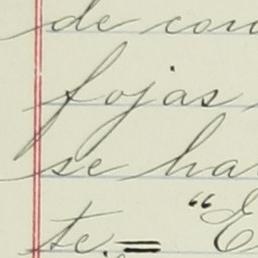 de con
fojas
se ha
te.= "E